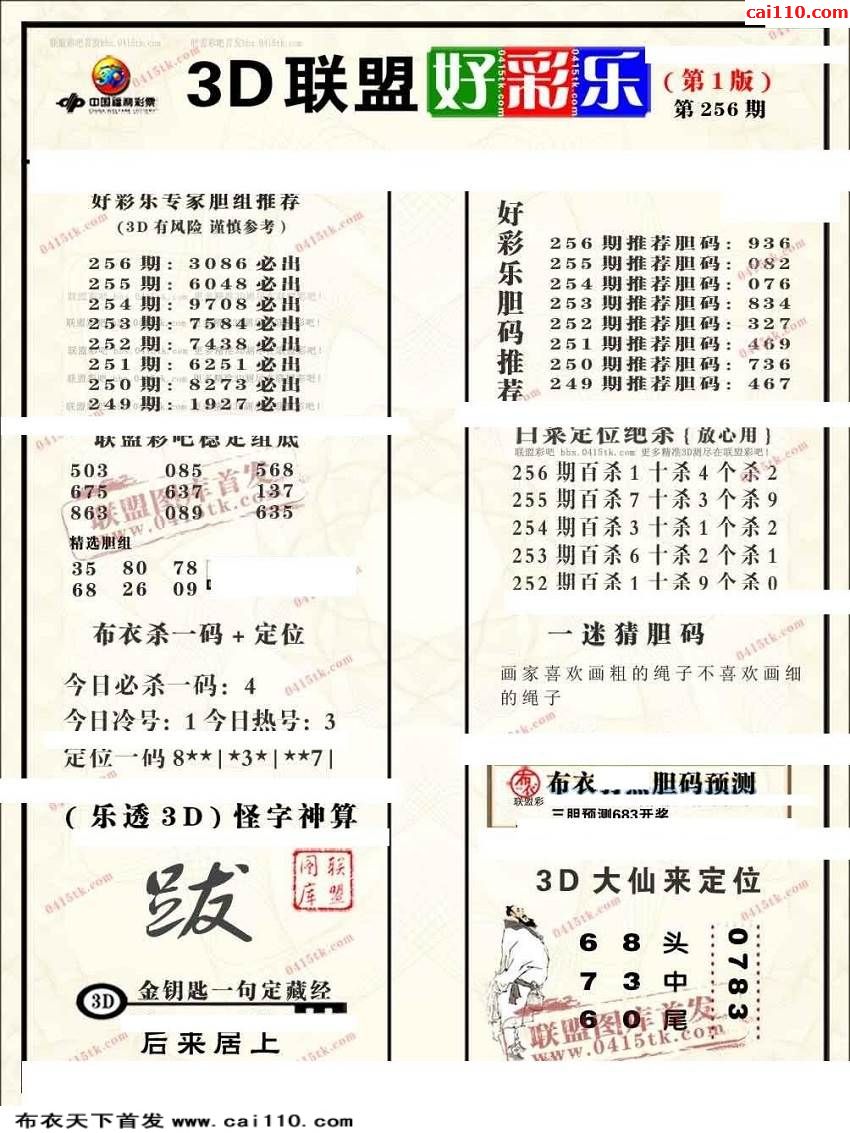 cai110.com
3D联盟好彩乐
(第1版)
第256期
中国福利彩票
好彩乐专家胆组推荐
(3D有风险 谨慎参考)
256期:3086必出
255期:6048必出
254期:9708必出
253期:7584必出
252期:7438必出
251期:6251必出
250期:8273必出
249期:1927必出
好彩乐胆码推荐
256期推荐胆码:936
255期推荐胆码:082
254期推荐胆码:076
253期推荐胆码:834
252期推荐胆码:327
251期推荐胆码:469
250期推荐胆码:736
249期推荐胆码:467
联盟彩吧稳定组底
503 085 568
675 637 137
863 089 635
精选胆组
35 80 78
68 26 09
联盟图库首发
www.0415tk.com
白菜定位绝杀{放心用}
联盟彩吧 bbs.0415tk.com 更多精准3D测尽在联盟彩吧!
256期百杀1十杀4个杀2
255期百杀7十杀3个杀9
254期百杀3十杀1个杀2
253期百杀6十杀2个杀1
252期百杀1十杀9个杀0
布衣杀一码+定位
今日必杀一码:4
今日冷号:1 今日热号:3
定位一码8**|*3*|**7|
一迷猜胆码
画家喜欢画粗的绳子不喜欢画细
的绳子
布衣
胆码预测
联盟彩
三胆预测683开奖
(乐透3D)怪字神算
跋
联盟图库
3D
金钥匙一句定藏经
后来居上
3D大仙来定位
6 8 头
7 3 中
6 0 尾
0783
联盟图库首发
www.0415tk.com
布衣天下首发 www.cai110.com